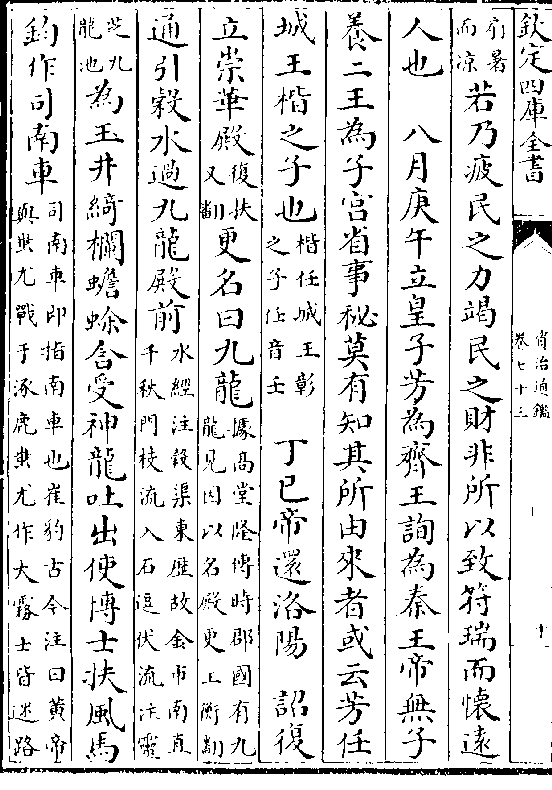 欽定四庫全書
資治通鑑
卷七十三
十
而涼
若乃疲民之力竭民之財非所以致符瑞而懷遠
人也　八月庚午立皇子芳為齊王詢為秦王帝無子
養二王為子宮省事秘莫有知其所由來者或云芳任
城王楷之子也楷任城王彰之子任音壬　丁巳帝還洛陽　詔復
立崇華殿復扶又翻更名曰九龍據高堂隆傳時郡國有九龍見因以名殿更工衡翻
通引穀水過九龍殿前水經注穀渠東歷故金市南直千秋門枝流入石逗伏流注靈
芝九龍池為玉井綺欄蟾蜍含受神龍吐出使博士扶風馬
鈞作司南車司南車即指南車也崔豹古今注曰黃帝與蚩尤戰于涿鹿蚩尤作大霧士皆迷路